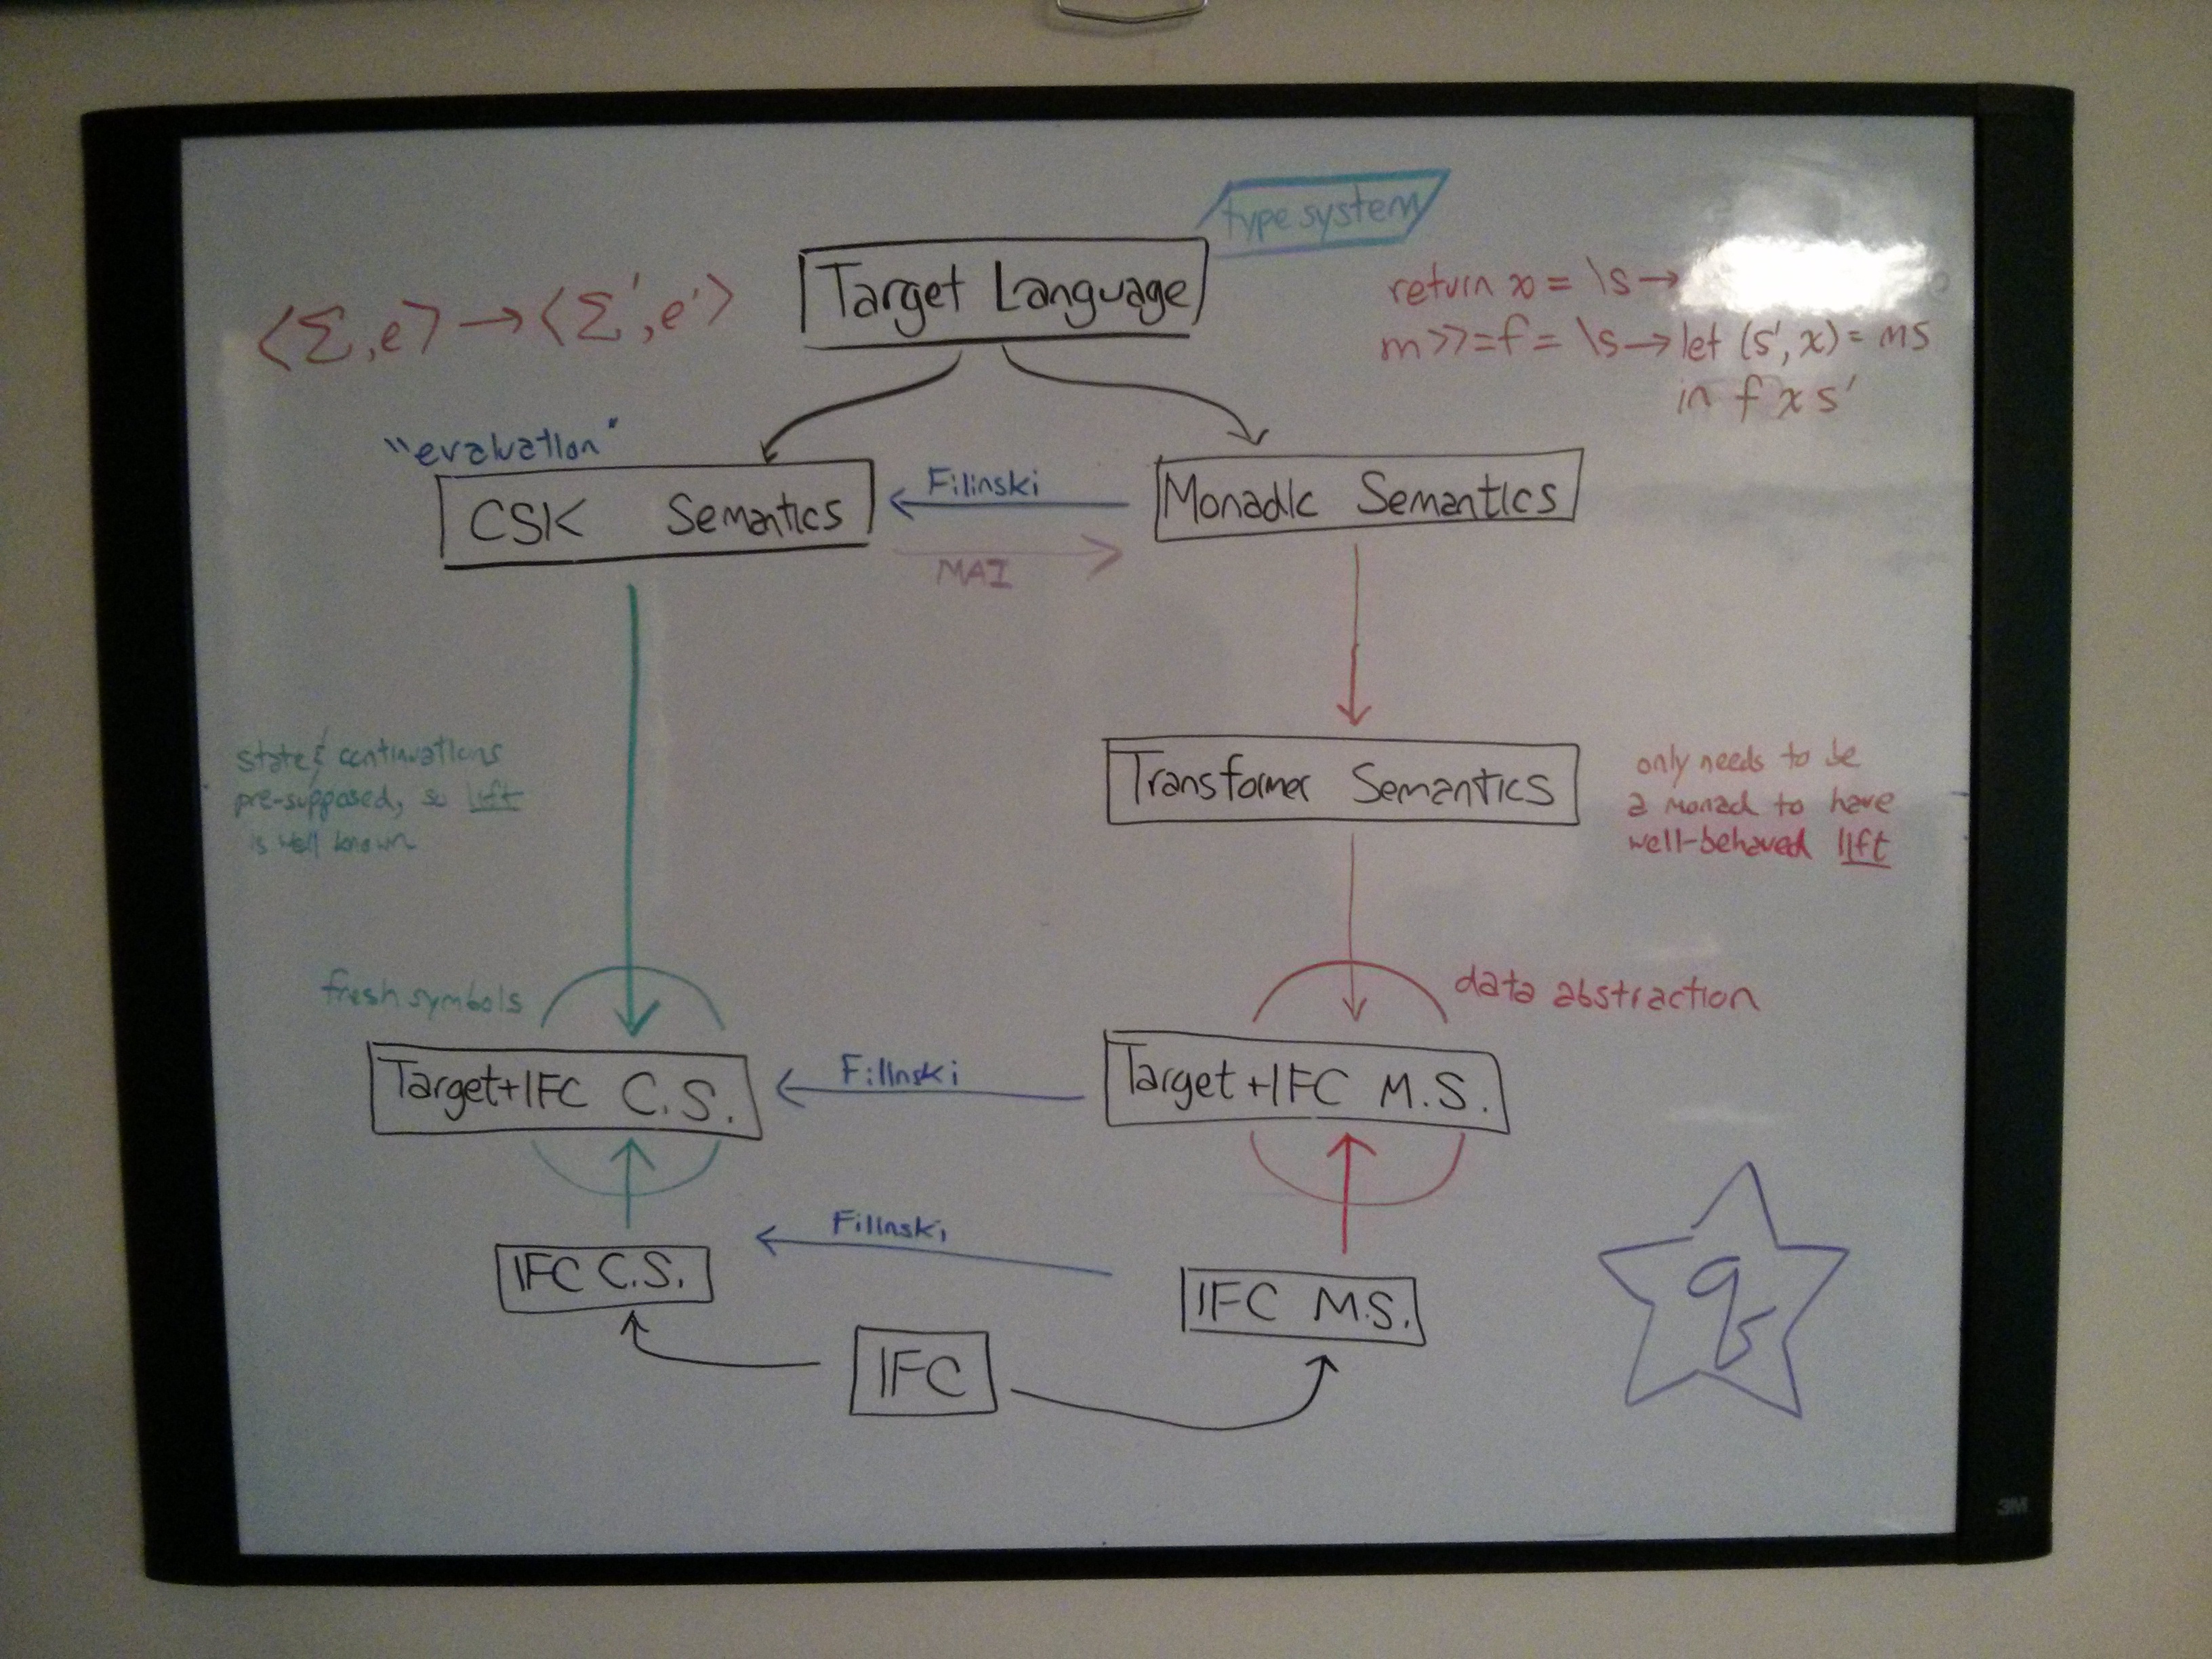 type system
Target Language
⟨Σ,e⟩→⟨Σ',e'⟩
return x = \s→
m>>=f = \s→let (s',x)= m s
in f x s'
"evaluation"
CSK Semantics
Filinski
MAI
Monadic Semantics
state & continuations
pre-supposed, so lift
is well known
Transformer Semantics
only needs to be
a monad to have
well-behaved lift
fresh symbols
data abstraction
Target+IFC C.S.
Filinski
Target+IFC M.S.
IFC C.S.
Filinski
IFC M.S.
IFC
3M